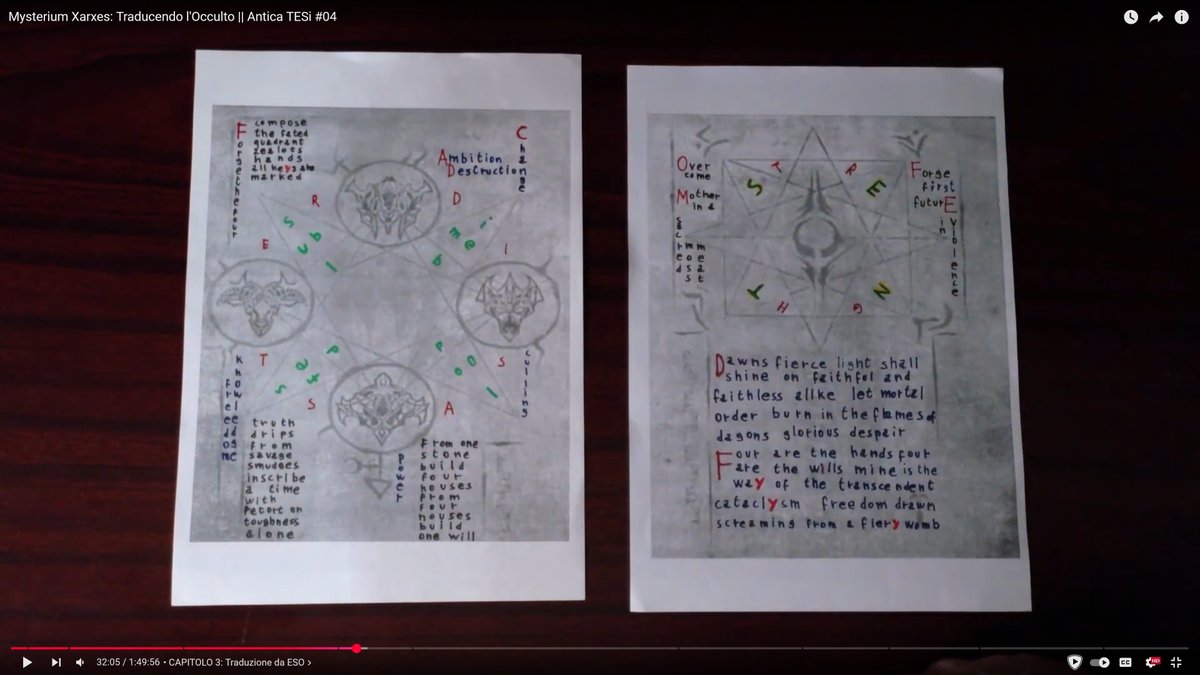 Mysterium Xarxes: Traducendo l'Occulto || Antica TESi #04
compose
the fated
quadrant
zealots
hands
all keys are
marked
Forgethepour
Change
Ambition
Destruction
R
D
E
I
T
S
S
A
culling
Knowledge
freedom
truth
drips
from
savage
smudges
inscribe
a time
with
retort on
toughness
alone
power
from one
stone
build
four
houses
from
four
houses
build
one will
Over
come
Mother
in a
sacred
mm
oe
sa
st
S T R E
Forge
first
futurE
in
Violence
Y H G N
Dawns fierce light shall
shine on faithful and
faithless alike let mortal
order burn in the flames of
dagons glorious despair
Four are the hands four
are the wills mine is the
way of the transcendent
cataclysm freedom drawn
screaming from a fiery womb
32:05 / 1:49:56 • CAPITOLO 3: Traduzione da ESO
CC
HD